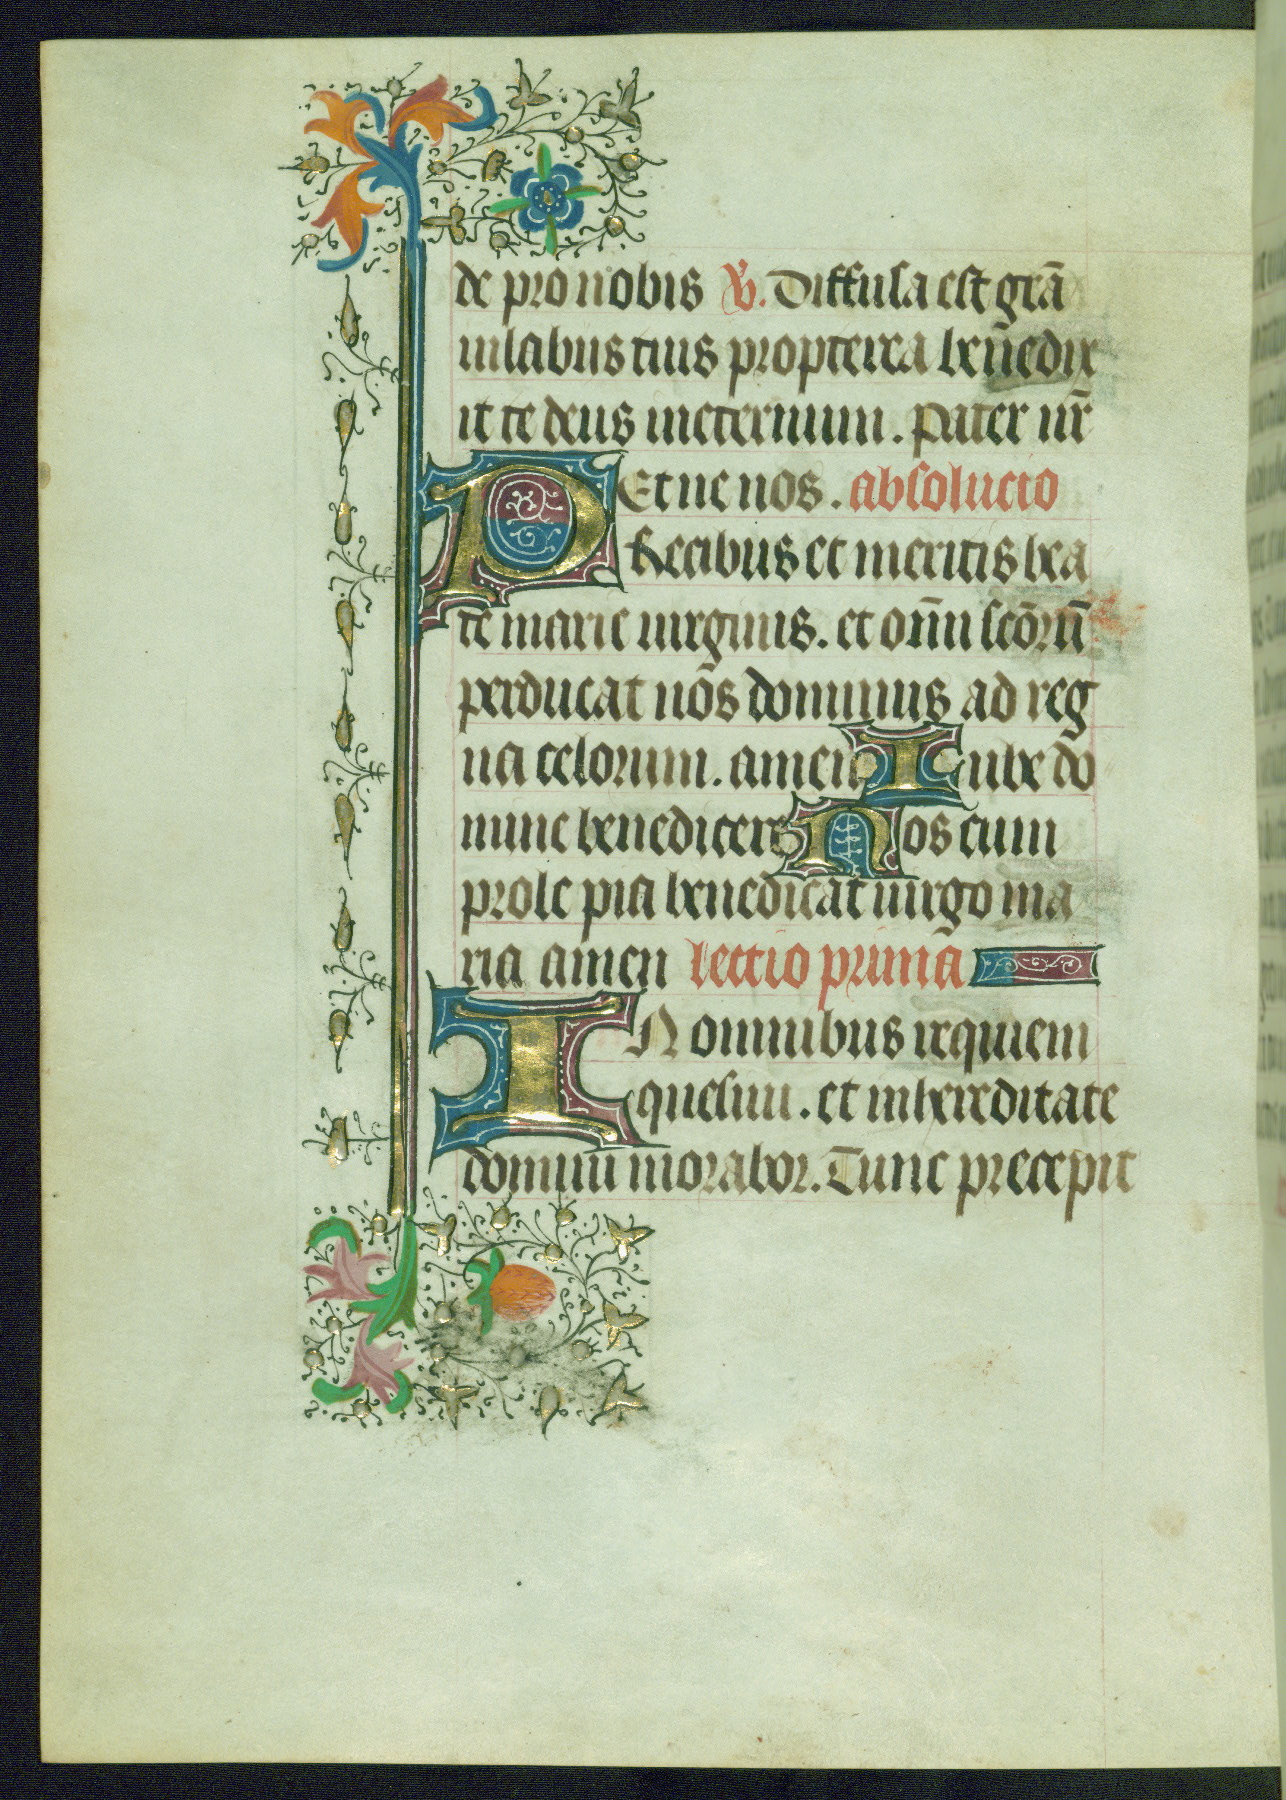 de pro nobis ℣. Diffusa est gr̄a
in labiis tuis propterea bened̄ix
it te deus in eternum. Pater nr̄
Et ne nos. absolucio
PRecibus et meritis bea
te marie uirginis. et om̄i sc̄orū
perducat nōs dominus ad reg
na celorum. amen Iube do
mine benedicere Nos cum
prole pia benedicat uirgo ma
ria amen lectio prima
IN omnibus requiem
quesiui. et in hereditate
domini morabor. Tunc precepit